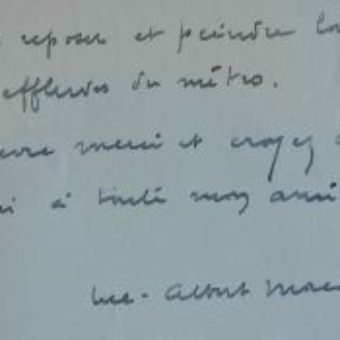 reposer et peindre lo
effluves du métro.
merci et croyez
i à toute mon ami
Luc-Albert More